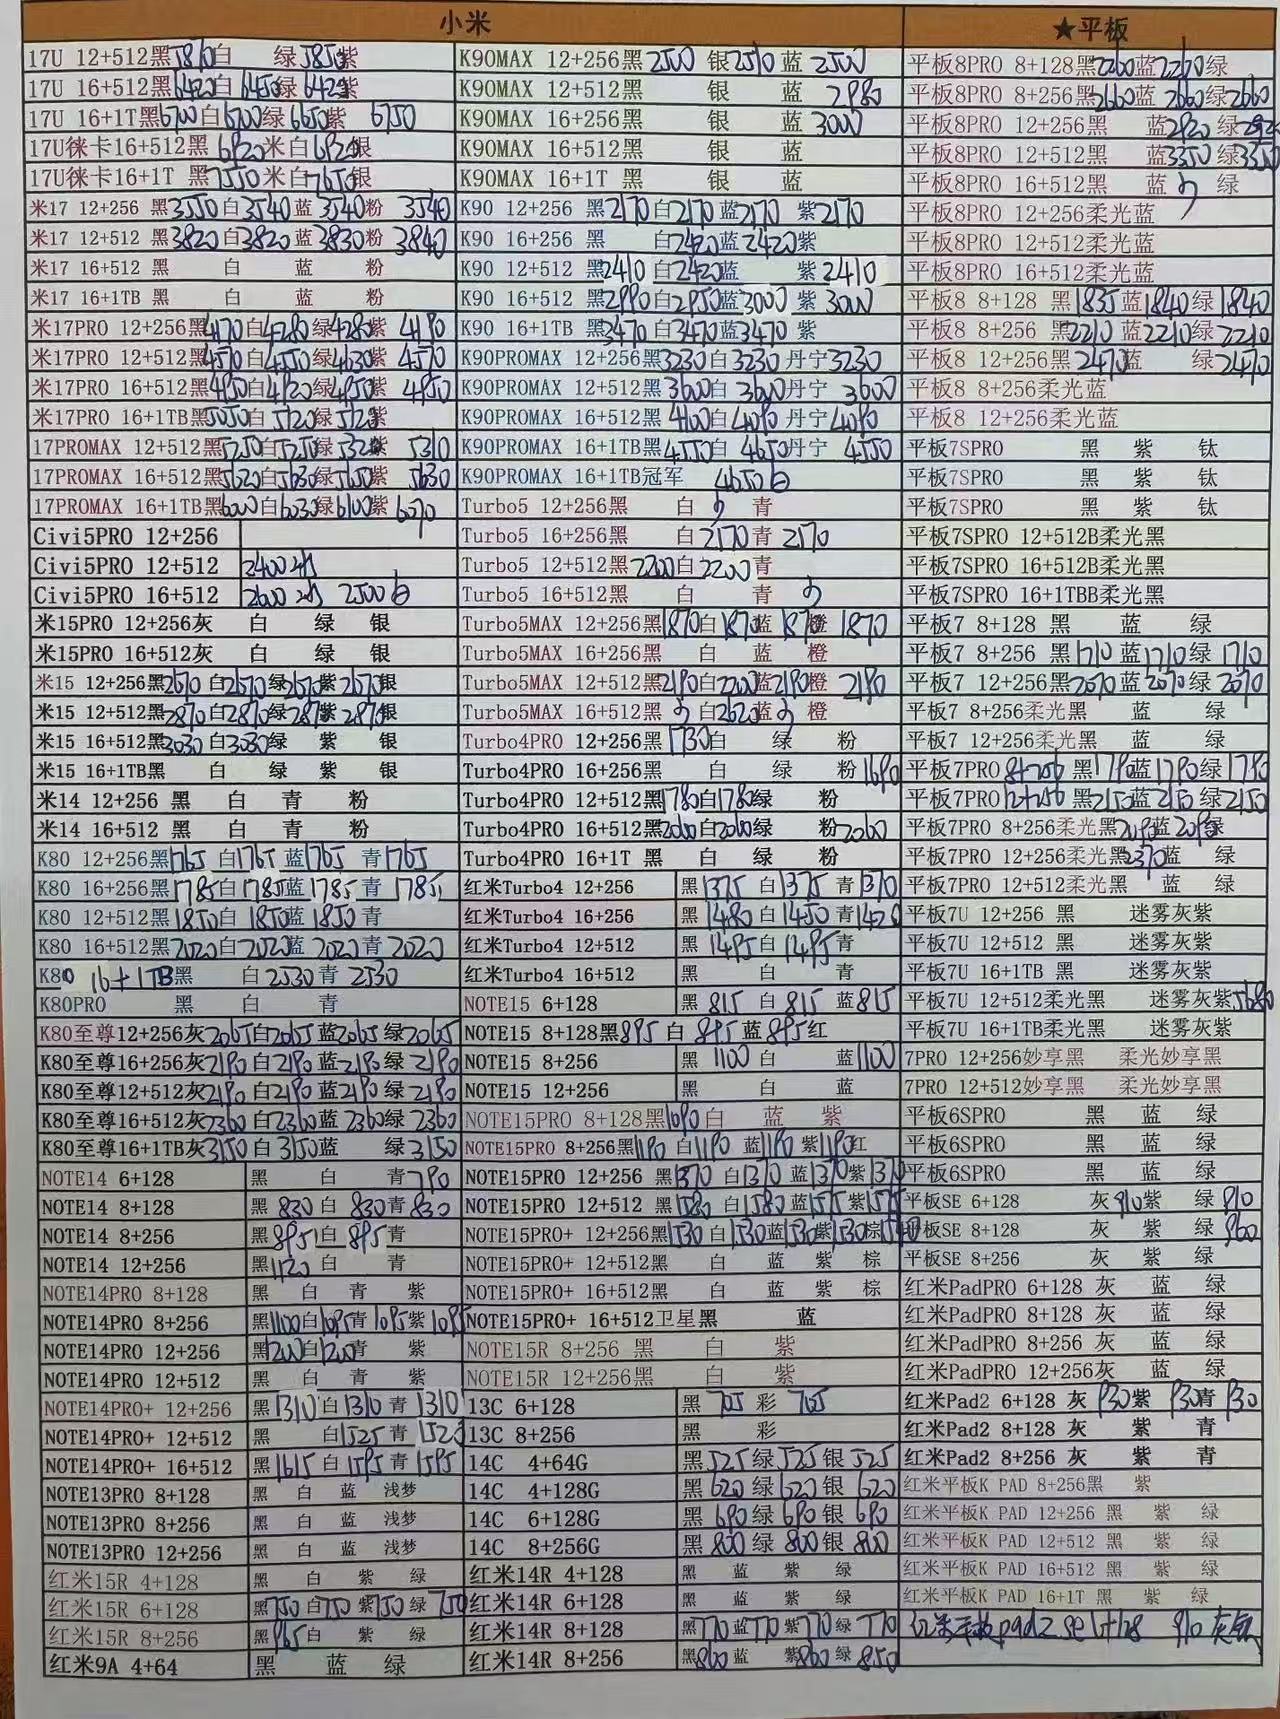 小米
17U 12+512黑5810白 绿5850紫
17U 16+512黑6420白6450绿6420紫
17U 16+1T黑6700白6700绿6650紫 6750
17U徕卡16+512黑6920米白6920银
17U徕卡16+1T 黑7550米白7650银
米17 12+256 黑3550白3540蓝3540粉 3540
米17 12+512 黑3820白3820蓝3830粉 3840
米17 16+512 黑 白 蓝 粉
米17 16+1TB 黑 白 蓝 粉
米17PRO 12+256黑4170白4280绿4280紫 4190
米17PRO 12+512黑4570白4550绿4630紫 4570
米17PRO 16+512黑4950白4920绿4950紫 4950
米17PRO 16+1TB黑5050白5120绿5120紫
17PROMAX 12+512黑5250白5250绿5320紫 5310
17PROMAX 16+512黑5620白5630绿5650紫 5630
17PROMAX 16+1TB黑6000白6030绿6100紫 6070
Civi5PRO 12+256
Civi5PRO 12+512 2400
Civi5PRO 16+512 2600 2500白
米15PRO 12+256灰 白 绿 银
米15PRO 16+512灰 白 绿 银
米15 12+256黑2670白2670绿2670紫2670银
米15 12+512黑2870白2870绿2870紫2870银
米15 16+512黑3030白3030绿 紫 银
米15 16+1TB黑 白 绿 紫 银
米14 12+256 黑 白 青 粉
米14 16+512 黑 白 青 粉
K80 12+256黑1765 白1765 蓝1765 青1765
K80 16+256黑1785白1785蓝1785 青 1785
K80 12+512黑1850白 1850蓝1850 青
K80 16+512黑2020白2020蓝 2020青2020
K80 16+1TB黑 白2530青 2530
K80PRO 黑 白 青
K80至尊12+256灰2065白2065蓝2065绿2065
K80至尊16+256灰2190白2190蓝2190绿2190
K80至尊12+512灰2190白2190蓝2190绿2190
K80至尊16+512灰2360白2360蓝2360绿2360
K80至尊16+1TB灰3150白3150蓝 绿3150
NOTE14 6+128 黑 白 青790
NOTE14 8+128 黑 830 白 830青830
NOTE14 8+256 黑895白 895青
NOTE14 12+256 黑1120白 青
NOTE14PRO 8+128 黑 白 青 紫
NOTE14PRO 8+256 黑1100白1095青1095紫1095
NOTE14PRO 12+256 黑1200白1200青 紫
NOTE14PRO 12+512 黑 白 青 紫
NOTE14PRO+ 12+256 黑1310白1310青1310
NOTE14PRO+ 12+512 黑 白1525青1525
NOTE14PRO+ 16+512 黑1615白1595青1595
NOTE13PRO 8+128 黑 白 蓝 浅梦
NOTE13PRO 8+256 黑 白 蓝 浅梦
NOTE13PRO 12+256 黑 白 蓝 浅梦
红米15R 4+128 黑 白 紫 绿
红米15R 6+128 黑750白750紫750绿750
红米15R 8+256 黑965白 紫 绿
红米9A 4+64 黑 蓝 绿
K90MAX 12+256黑2500 银2510蓝2500
K90MAX 12+512黑 银 蓝 2980
K90MAX 16+256黑 银 蓝3000
K90MAX 16+512黑 银 蓝
K90MAX 16+1T 黑 银 蓝
K90 12+256 黑2170白2170蓝2170 紫2170
K90 16+256 黑 白2420蓝2420紫
K90 12+512 黑2410白2420蓝 紫2410
K90 16+512 黑2990白2950蓝3000紫3000
K90 16+1TB 黑3470白3470蓝3470 紫
K90PROMAX 12+256黑3230白3230丹宁3230
K90PROMAX 12+512黑3600白 3600丹宁 3600
K90PROMAX 16+512黑4100白4090丹宁4090
K90PROMAX 16+1TB黑4550白 4650丹宁 4550
K90PROMAX 16+1TB冠军 4650白
Turbo5 12+256黑 白 青
Turbo5 16+256黑 白2170青2170
Turbo5 12+512黑2200白2200青
Turbo5 16+512黑 白 青
Turbo5MAX 12+256黑1870白1870蓝1870橙 1870
Turbo5MAX 16+256黑 白 蓝 橙
Turbo5MAX 12+512黑2190白2200蓝2190橙 2190
Turbo5MAX 16+512黑 白2620蓝 橙
Turbo4PRO 12+256黑1730白 绿 粉
Turbo4PRO 16+256黑 白 绿 粉1690
Turbo4PRO 12+512黑1780白1780绿 粉
Turbo4PRO 16+512黑2060白2060绿 粉2060
Turbo4PRO 16+1T 黑 白 绿 粉
红米Turbo4 12+256 黑1375 白1375 青1370
红米Turbo4 16+256 黑1480白1450青1420
红米Turbo4 12+512 黑1495白1495青
红米Turbo4 16+512 黑 白 青
NOTE15 6+128 黑 815 白 815 蓝815
NOTE15 8+128黑895 白 895 蓝895红
NOTE15 8+256 黑 1100白 蓝1100
NOTE15 12+256 黑 白 蓝
NOTE15PRO 8+128黑1090白 蓝 紫
NOTE15PRO 8+256黑1190 白1190 蓝1190 紫1190红
NOTE15PRO 12+256 黑1370 白1370 蓝1370紫1370
NOTE15PRO 12+512 黑1580 白1580蓝1575紫1575
NOTE15PRO+ 12+256黑1530 白1530蓝1530紫1530棕1540
NOTE15PRO+ 12+512黑 白 蓝 紫 棕
NOTE15PRO+ 16+512黑 白 蓝 紫 棕
NOTE15PRO+ 16+512卫星黑 蓝
NOTE15R 8+256 黑 白 紫
NOTE15R 12+256黑 白 紫
13C 6+128 黑 705 彩 705
13C 8+256 黑 彩
14C 4+64G 黑525绿525银525
14C 4+128G 黑620绿620银620
14C 6+128G 黑690绿690银690
14C 8+256G 黑800绿800银800
红米14R 4+128 黑 蓝 紫 绿
红米14R 6+128 黑 蓝 紫 绿
红米14R 8+128 黑770蓝770紫770绿 770
红米14R 8+256 黑860蓝 紫860绿 850
★平板
平板8PRO 8+128黑2260蓝2270绿
平板8PRO 8+256黑2660蓝 2660绿2660
平板8PRO 12+256黑 蓝2920绿292
平板8PRO 12+512黑 蓝3350绿3350
平板8PRO 16+512黑 蓝 绿
平板8PRO 12+256柔光蓝
平板8PRO 12+512柔光蓝
平板8PRO 16+512柔光蓝
平板8 8+128 黑1835蓝1840绿1840
平板8 8+256 黑2210蓝2210绿2210
平板8 12+256黑2470蓝 绿2470
平板8 8+256柔光蓝
平板8 12+256柔光蓝
平板7SPRO 黑 紫 钛
平板7SPRO 黑 紫 钛
平板7SPRO 黑 紫 钛
平板7SPRO 12+512B柔光黑
平板7SPRO 16+512B柔光黑
平板7SPRO 16+1TBB柔光黑
平板7 8+128 黑 蓝 绿
平板7 8+256 黑1710蓝1710绿1710
平板7 12+256黑2070蓝2070绿2070
平板7 8+256柔光黑 蓝 绿
平板7 12+256柔光黑 蓝 绿
平板7PRO 8+256 黑1790蓝1790绿1790
平板7PRO 12+256 黑2150蓝2150绿2150
平板7PRO 8+256柔光黑2090蓝2090绿
平板7PRO 12+256柔光黑2370蓝 绿
平板7PRO 12+512柔光黑 蓝 绿
平板7U 12+256 黑 迷雾灰紫
平板7U 12+512 黑 迷雾灰紫
平板7U 16+1TB 黑 迷雾灰紫
平板7U 12+512柔光黑 迷雾灰紫5680
平板7U 16+1TB柔光黑 迷雾灰紫
7PRO 12+256妙享黑 柔光妙享黑
7PRO 12+512妙享黑 柔光妙享黑
平板6SPRO 黑 蓝 绿
平板6SPRO 黑 蓝 绿
平板6SPRO 黑 蓝 绿
平板SE 6+128 灰910紫 绿910
平板SE 8+128 灰 紫 绿960
平板SE 8+256 灰 紫 绿
红米PadPRO 6+128 灰 蓝 绿
红米PadPRO 8+128 灰 蓝 绿
红米PadPRO 8+256 灰 蓝 绿
红米PadPRO 12+256灰 蓝 绿
红米Pad2 6+128 灰 930紫 930青930
红米Pad2 8+128 灰 紫 青
红米Pad2 8+256 灰 紫 青
红米平板K PAD 8+256黑 紫
红米平板K PAD 12+256 黑 紫 绿
红米平板K PAD 12+512 黑 紫 绿
红米平板K PAD 16+512 黑 紫 绿
红米平板K PAD 16+1T 黑 紫 绿
红米平板pad2 se 910 灰